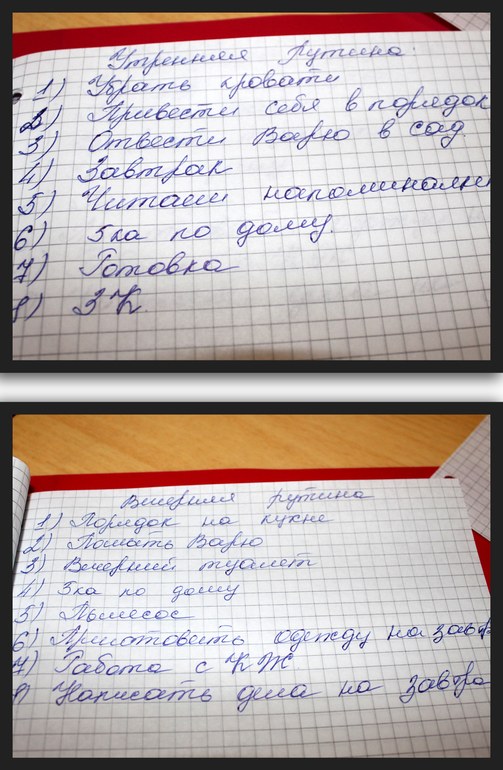 Утренняя рутина.
1) Убрать кровати
2) Привести себя в порядок
3) Отвести Варю в сад.
4) Завтрак
5) Читаем
6) 5ка по дому.
7) Готовка
8) ЗК.
Вечерняя рутина
1) Порядок на кухне
2) Помать Варю
3) Вечерний туалет
4) 5ка по дому
5) Пылесос
6) одежду на завт
7) Работа с КЖ.
8) Написать дела на завтра